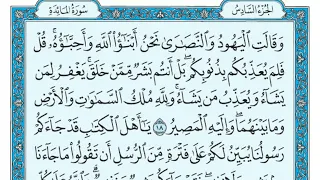 سُورَةُ المَائِدَة
الجُزْءُ السَّادِسُ
وَقَالَتِ ٱلْيَهُودُ وَٱلنَّصَٰرَىٰ نَحْنُ أَبْنَٰٓؤُا۟ ٱللَّهِ وَأَحِبَّٰٓؤُهُۥ ۚ قُلْ
فَلِمَ يُعَذِّبُكُم بِذُنُوبِكُم ۖ بَلْ أَنتُم بَشَرٌ مِّمَّنْ خَلَقَ ۚ يَغْفِرُ لِمَن
يَشَآءُ وَيُعَذِّبُ مَن يَشَآءُ ۚ وَلِلَّهِ مُلْكُ ٱلسَّمَٰوَٰتِ وَٱلْأَرْضِ
وَمَا بَيْنَهُمَا ۖ وَإِلَيْهِ ٱلْمَصِيرُ ١٨ يَٰٓأَهْلَ ٱلْكِتَٰبِ قَدْ جَآءَكُمْ
رَسُولُنَا يُبَيِّنُ لَكُمْ عَلَىٰ فَتْرَةٍ مِّنَ ٱلرُّسُلِ أَن تَقُولُوا۟ مَا جَآءَنَا